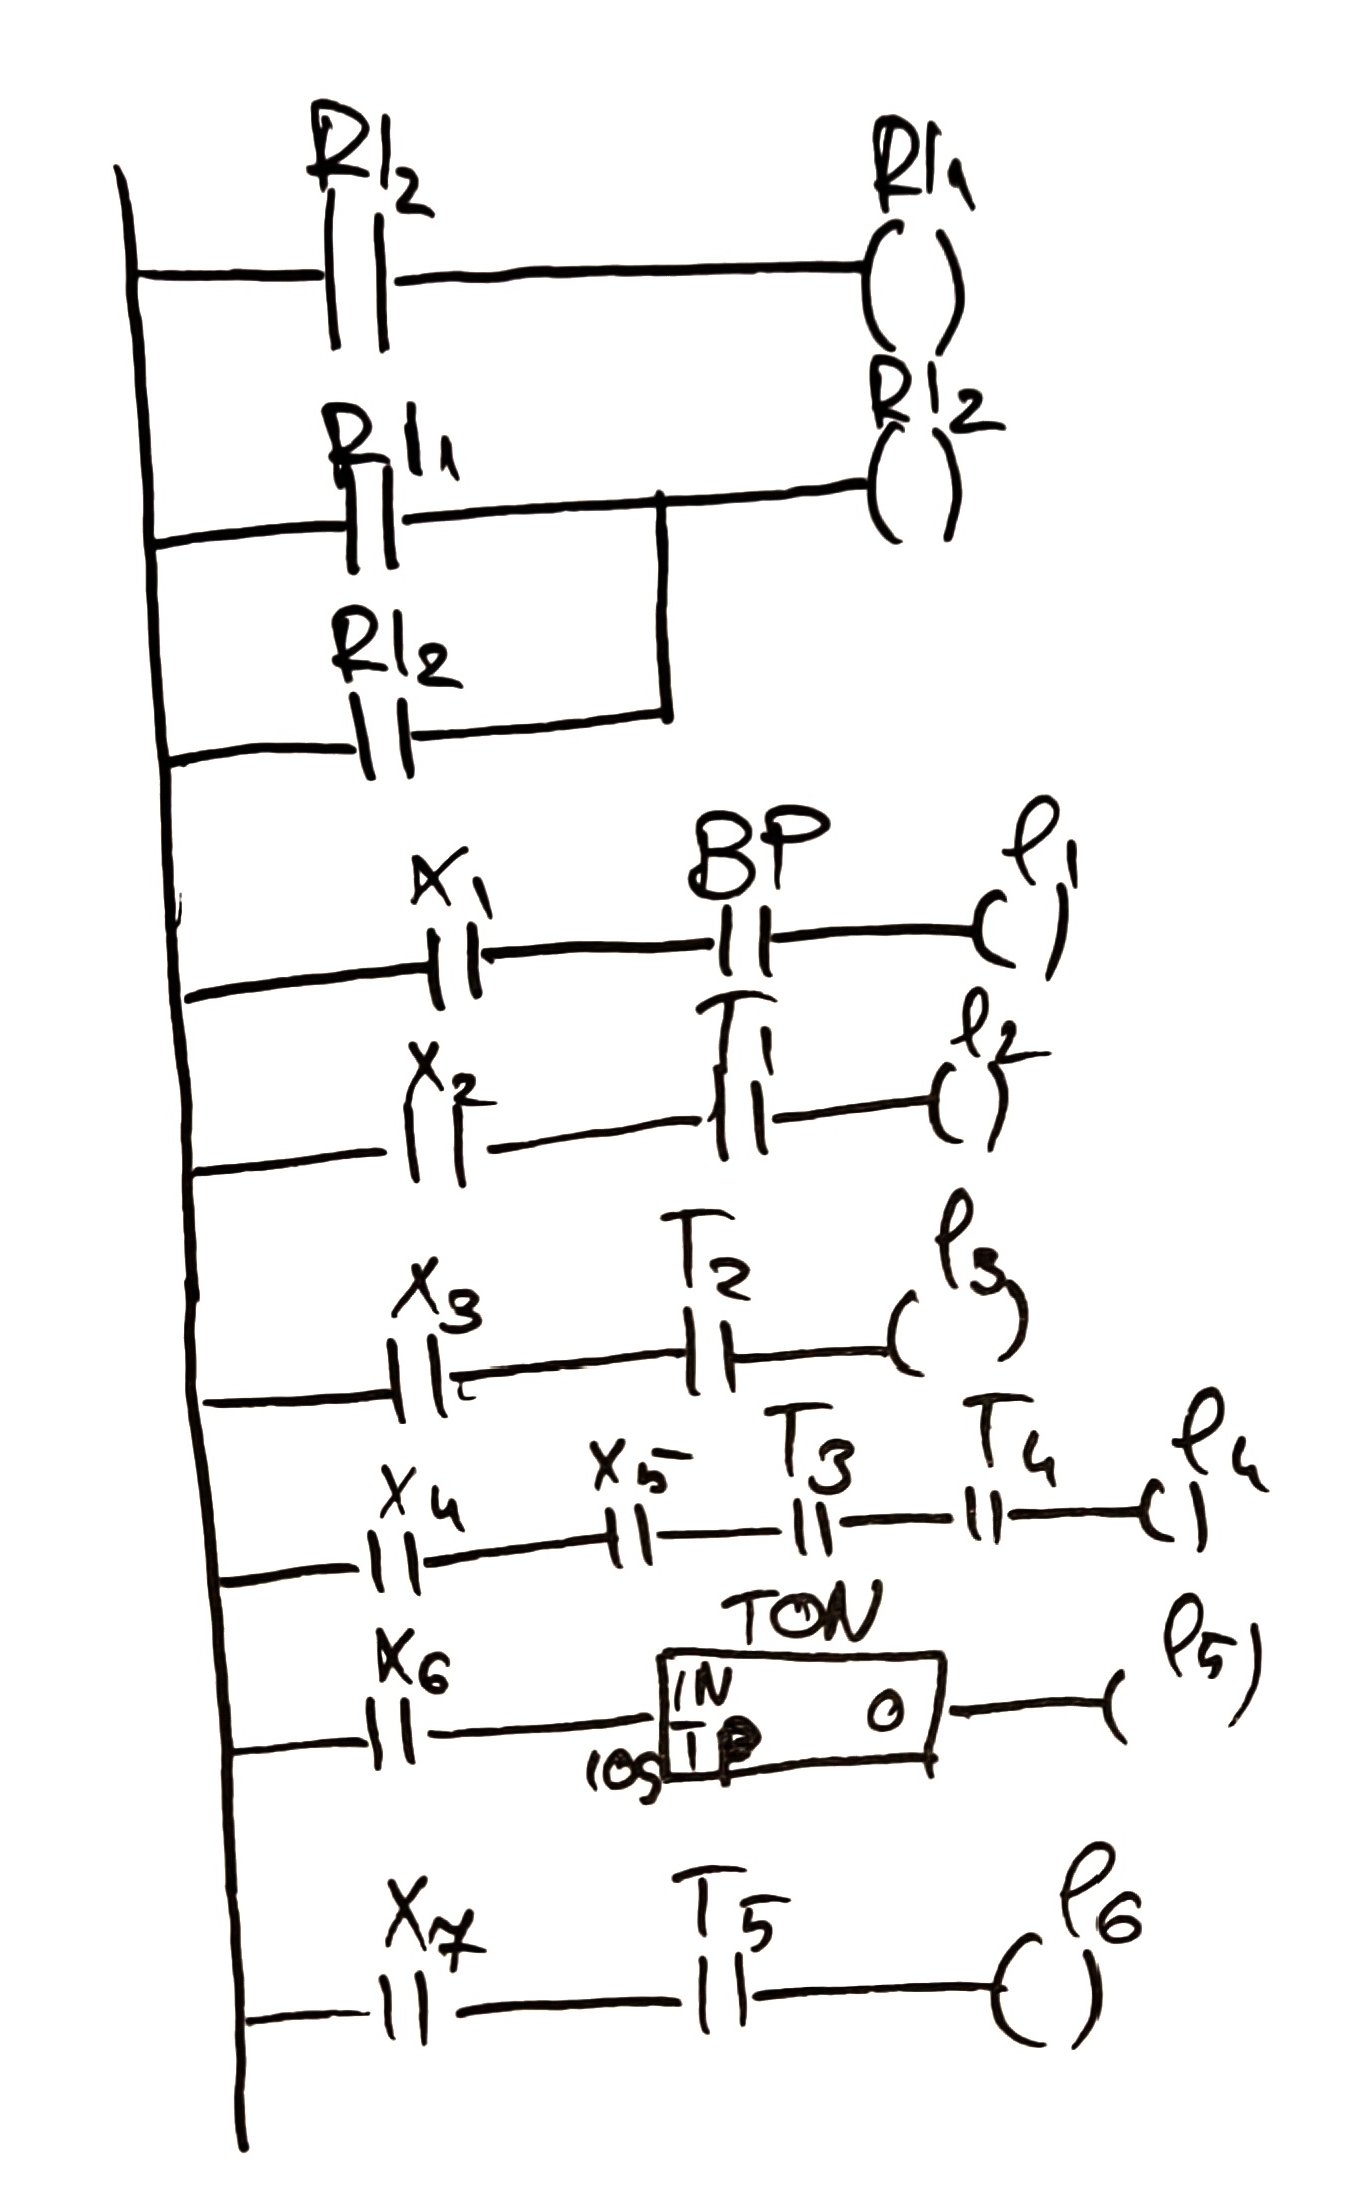 Rl2 Rl1
Rl1 Rl2
Rl2
X1 BP l1
X2 T1 l2
X3 T2 l3
X4 X5 T3 T4 l4
TON
X6 IN O l5
10s TP
X7 T5 l6